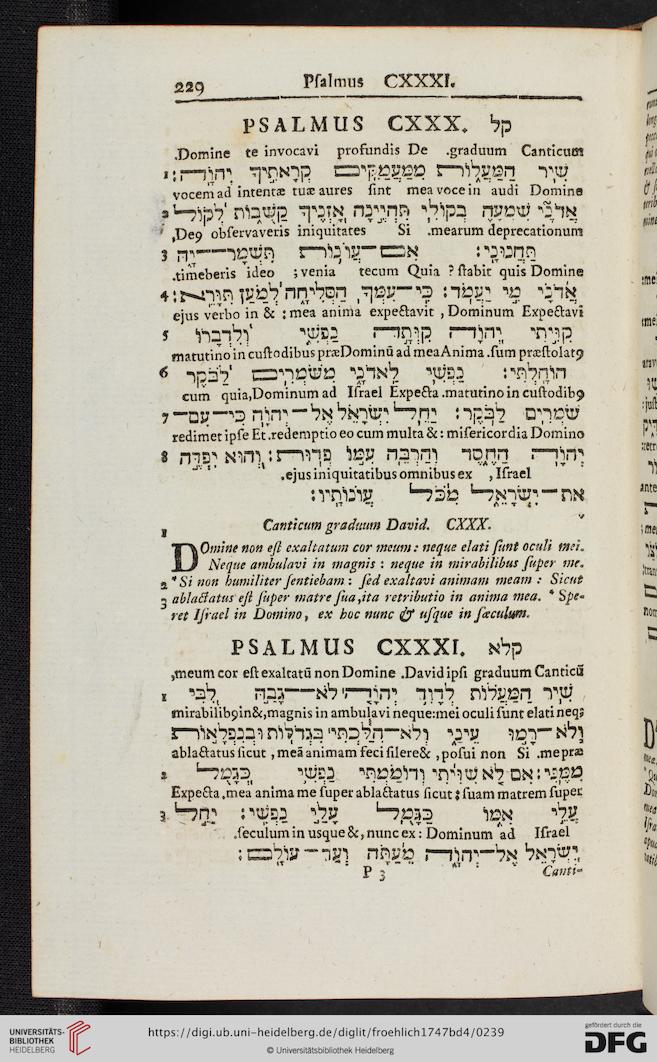 229 Psalmus CXXXI.
PSALMUS CXXX. קל
.Domine te invocavi profundis De .graduum Canticum
1 שִׁיר הַמַּעֲלוֹת מִמַּעֲמַקִּים קְרָאתִיךָ יְהוָה׃
vocem ad intentæ tuæ aures sint mea voce in audi Domine
2 אֲדֹנָי שִׁמְעָה בְקוֹלִי תִּהְיֶינָה אָזְנֶיךָ קַשֻּׁבוֹת לְקוֹל
,De9 observaveris iniquitates Si .mearum deprecationum
3 תַּחֲנוּנָי׃ אִם־עֲוֺנוֹת תִּשְׁמָר־יָהּ
.timeberis ideo ; venia tecum Quia ? stabit quis Domine
4 אֲדֹנָי מִי יַעֲמֹד׃ כִּי־עִמְּךָ הַסְּלִיחָה לְמַעַן תִּוָּרֵא׃
ejus verbo in & : mea anima expectavit , Dominum Expectavi
5 קִוִּיתִי יְהוָה קִוְּתָה נַפְשִׁי וְלִדְבָרוֹ
matutino in custodibus præ Dominū ad mea Anima .sum præstolat9
6 הוֹחָלְתִּי׃ נַפְשִׁי לַאדֹנָי מִשֹּׁמְרִים לַבֹּקֶר
cum quia,Dominum ad Israel Expecta .matutino in custodib9
7 שֹׁמְרִים לַבֹּקֶר׃ יַחֵל יִשְׂרָאֵל אֶל־יְהוָה כִּי־עִם־
redimet ipse Et .redemptio eo cum multa & : misericordia Domino
8 יְהוָה הַחֶסֶד וְהַרְבֵּה עִמּוֹ פְדוּת׃ וְהוּא יִפְדֶּה
.ejus iniquitatibus omnibus ex , Israel
אֶת־יִשְׂרָאֵל מִכֹּל עֲוֺנוֹתָיו׃
Canticum graduum David. CXXX.
1 DOmine non est exaltatum cor meum : neque elati sunt oculi mei.
Neque ambulavi in magnis : neque in mirabilibus super me.
2 * Si non humiliter sentiebam : sed exaltavi animam meam : Sicut
3 ablactatus est super matre sua, ita retributio in anima mea. * Spe-
ret Israel in Domino, ex hoc nunc & usque in sæculum.
PSALMUS CXXXI. קלא
,meum cor est exaltatū non Domine .David ipsi graduum Canticū
1 שִׁיר הַמַּעֲלוֹת לְדָוִד יְהוָה לֹא־גָבַהּ לִבִּי
mirabilib9 in &,magnis in ambulavi neque:mei oculi sunt elati neq;
וְלֹא־רָמוּ עֵינַי וְלֹא־הִלַּכְתִּי בִּגְדֹלוֹת וּבְנִפְלָאוֹת
ablactatus sicut , meā animam feci silere & , posui non Si .me præ
2 מִמֶּנִּי׃ אִם לֹא שִׁוִּיתִי וְדוֹמַמְתִּי נַפְשִׁי כְּגָמֻל
Expecta .mea anima me super ablactatus sicut ; suam matrem super
3 עֲלֵי אִמּוֹ כַּגָּמֻל עָלַי נַפְשִׁי׃ יַחֵל
.seculum in usque &, nunc ex : Dominum ad Israel
יִשְׂרָאֵל אֶל־יְהוָה מֵעַתָּה וְעַד־עוֹלָם׃
P 3 Canti-
UNIVERSITÄTS-
BIBLIOTHEK
HEIDELBERG
https://digi.ub.uni-heidelberg.de/diglit/froehlich1747bd4/0239
© Universitätsbibliothek Heidelberg
gefördert durch die
DFG